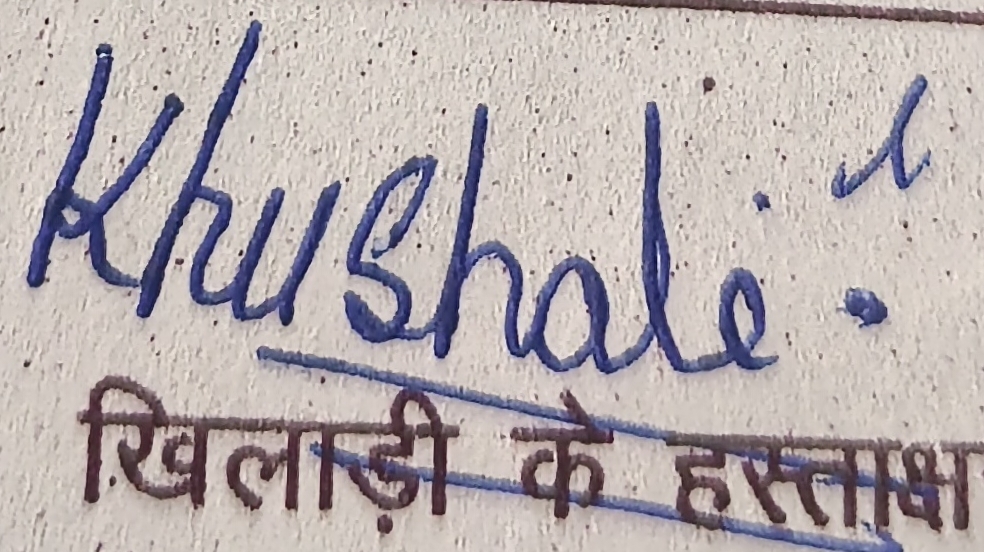 Khushali
खिलाड़ी के हस्ताक्ष